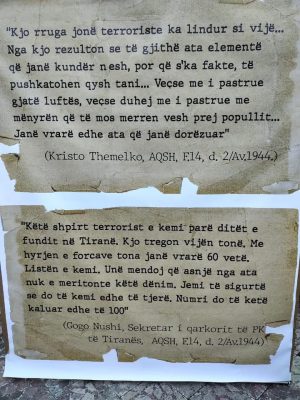 "Kjo rruga jonë terroriste ka lindur si vijë...
Nga kjo rezulton se të gjithë ata elementë
që janë kundër nesh, por që s'ka fakte, të
pushkatohen qysh tani... Veçse me i pastrue
gjatë luftës, veçse duhej me i pastrue me
mënyrën që të mos merren vesh prej popullit...
Janë vrarë edhe ata që janë dorëzuar"
(Kristo Themelko, AQSH, F.14, d. 2/Av,1944.)
"Këtë shpirt terrorist e kemi parë ditët e
fundit në Tiranë. Kjo tregon vijën tonë. Me
hyrjen e forcave tona janë vrarë 60 vetë.
Listën e kemi. Unë mendoj që asnjë nga ata
nuk e meritonte këtë dënim. Jemi të sigurtë
se do të kemi edhe të tjerë. Numri do të ketë
kaluar edhe të 100"
(Gogo Nushi, Sekretar i qarkorit të PK
të Tiranës, AQSH, F.14, d. 2/Av,1944)